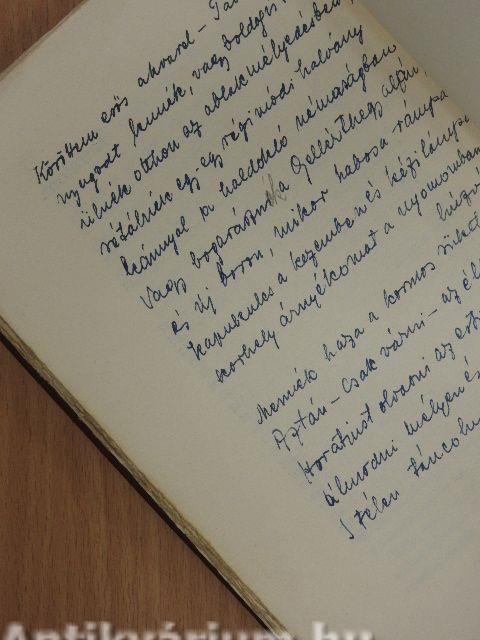 Köröttem erős akvarel –
nyugodt lennék, vagy boldog
ülnék otthon az ablakmélyedésben,
sétálnék egy régimódi halvány
leánnyal a haldokló némaságban
Vagy bogarásznék a Gellérthegy alján,
és új boron, mikor habos a rámpa
kapukulcs a kezemben és kézilámpa
korhely árnyékomat a nyomomban
Mennék haza a kormos
Aztán – csak várni – az
Horatiust olvasni az
álmodni mélyen és
S télen táncoln
Antikvárium.hu